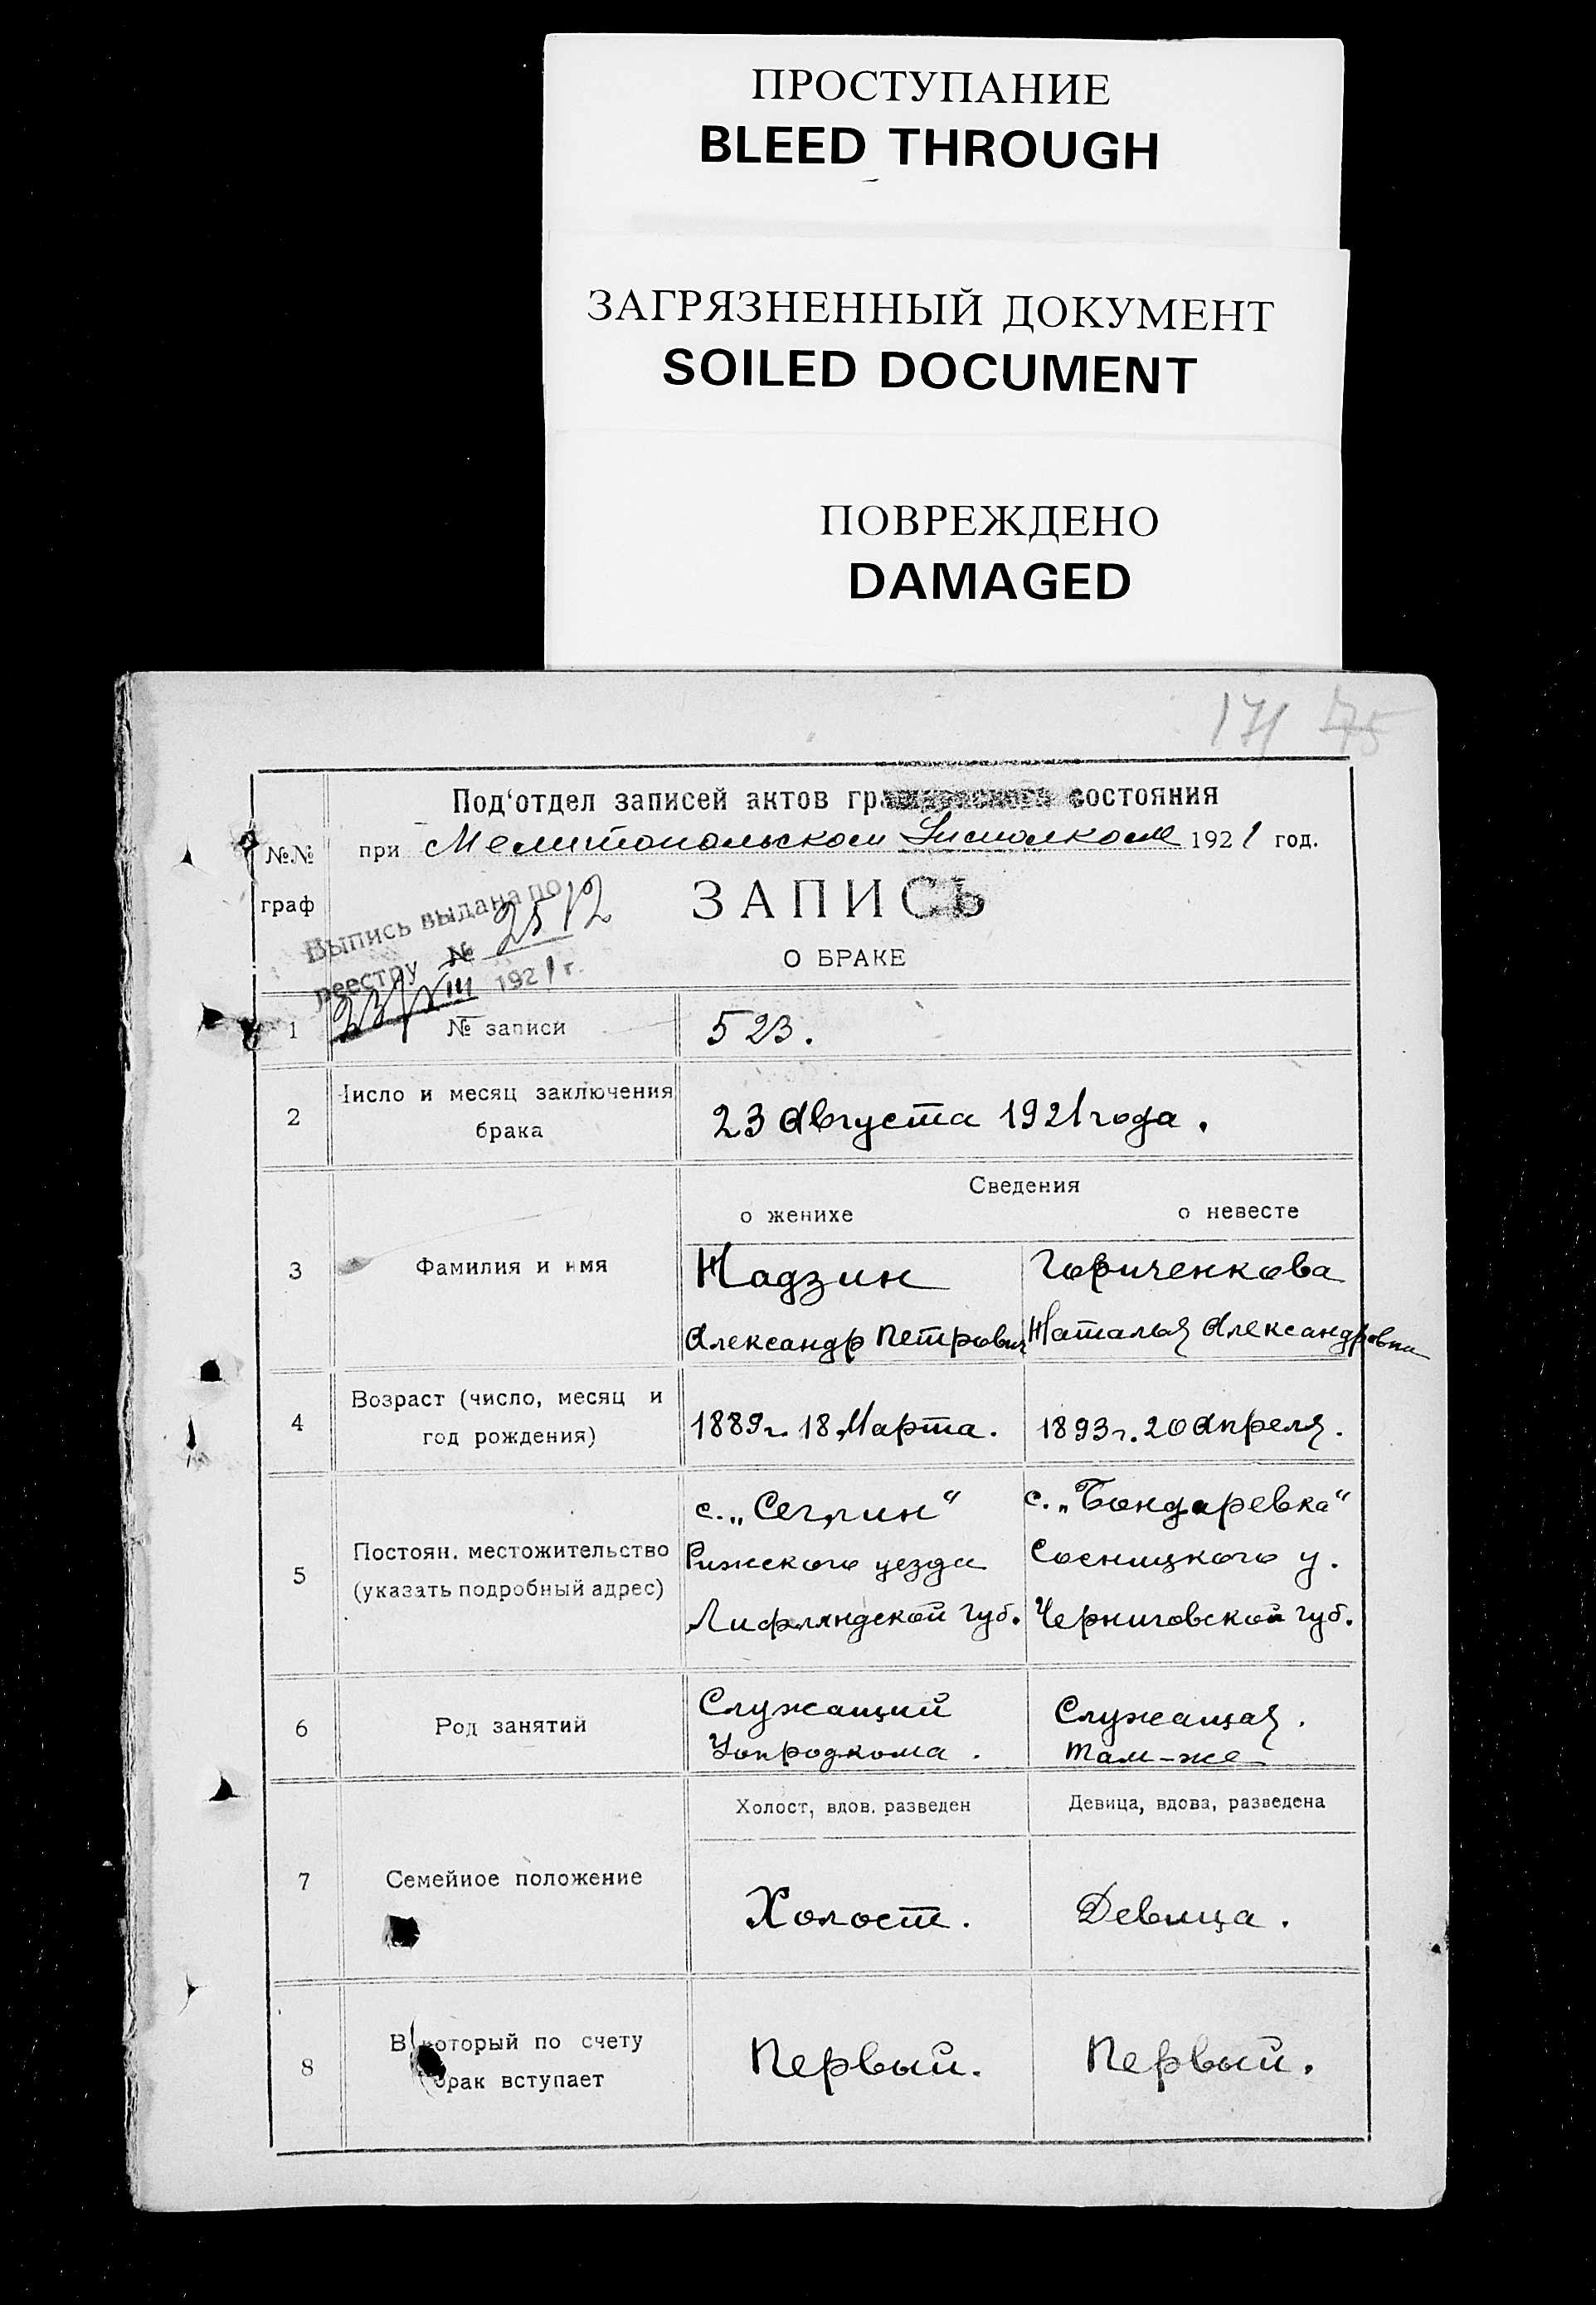 ПРОСТУПАНИЕ
BLEED THROUGH
ЗАГРЯЗНЕННЫЙ ДОКУМЕНТ
SOILED DOCUMENT
ПОВРЕЖДЕНО
DAMAGED
171 75
Под'отдел записей актов гражданского состояния
при Мелитопольском Исполкоме 1921 год.
№№
граф
Выпись выдана по
реестру № 2512
23/VIII 1921 г.
ЗАПИСЬ
О БРАКЕ
1 № записи 523.
2 Число и месяц заключения
брака
23 Августа 1921 года.
Сведения
о женихе о невесте
3 Фамилия и имя
Надзин Гориченкова
Александр Петрович Наталья Александровна
4 Возраст (число, месяц и
год рождения)
1889 г. 18 Марта. 1893 г. 20 Апреля.
5 Постоян. местожительство
(указать подробный адрес)
с. „Сеглин“ с. „Бондаревка“
Рижского уезда Сосницкого у.
Лифляндской губ. Черниговской губ.
6 Род занятий
Служащий Служащая.
Упродкома. там-же
Холост, вдов. разведен Девица, вдова, разведена
7 Семейное положение
Холост. Девица.
8 В который по счету
брак вступает
Первый. Первый.